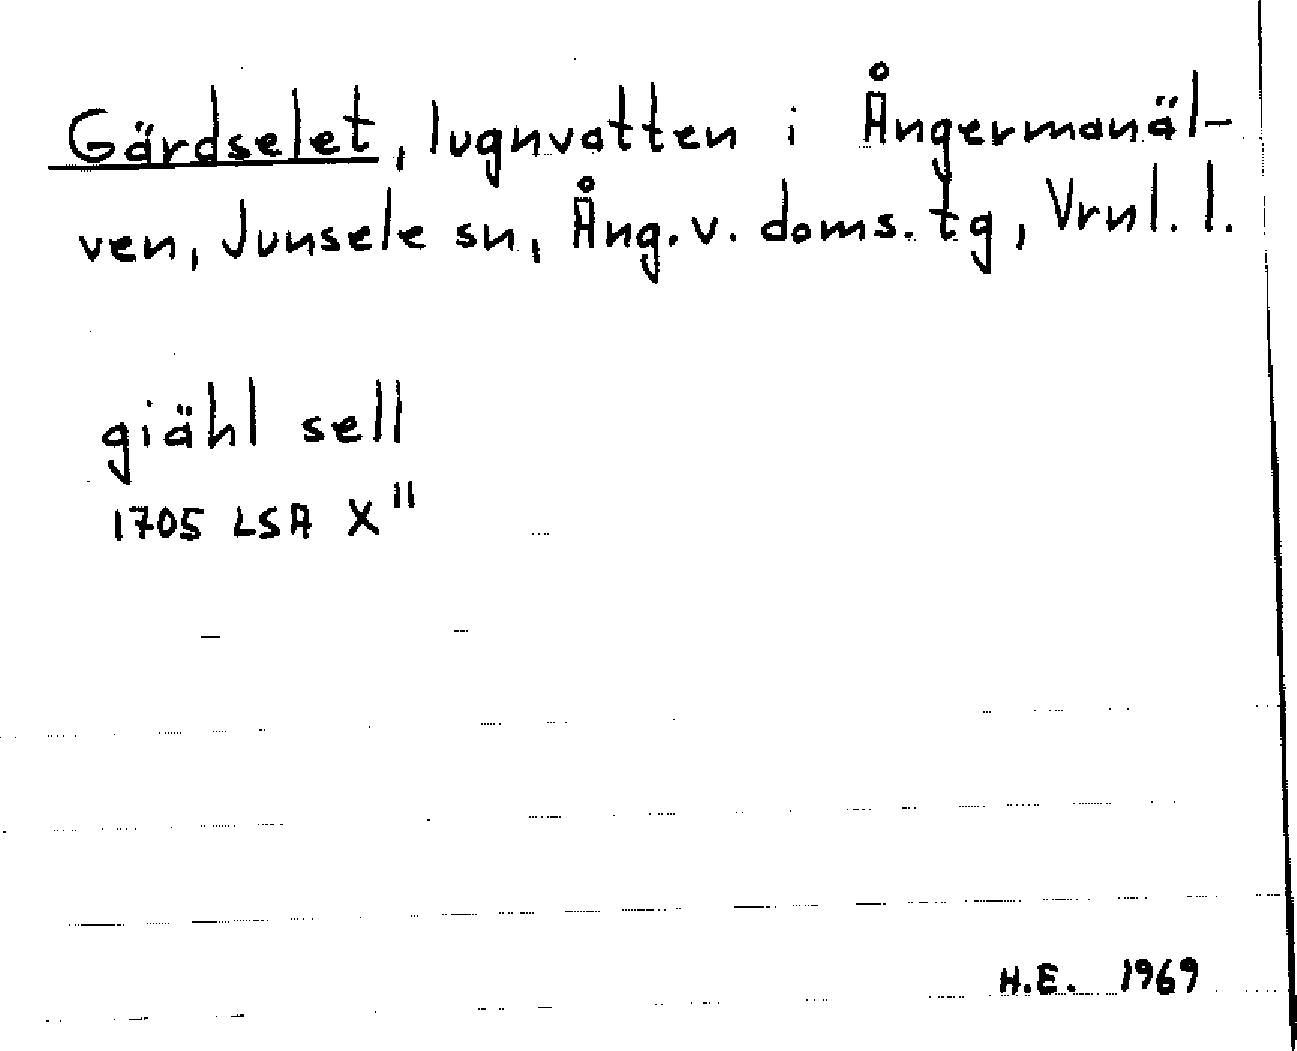 Gärdselet, lugnvatten i Ångermanäl-
ven, Junsele sn, Ång.v. doms.tg, Vrnl. l.
giähl sell
1705 LSA X"
H.E. 1969